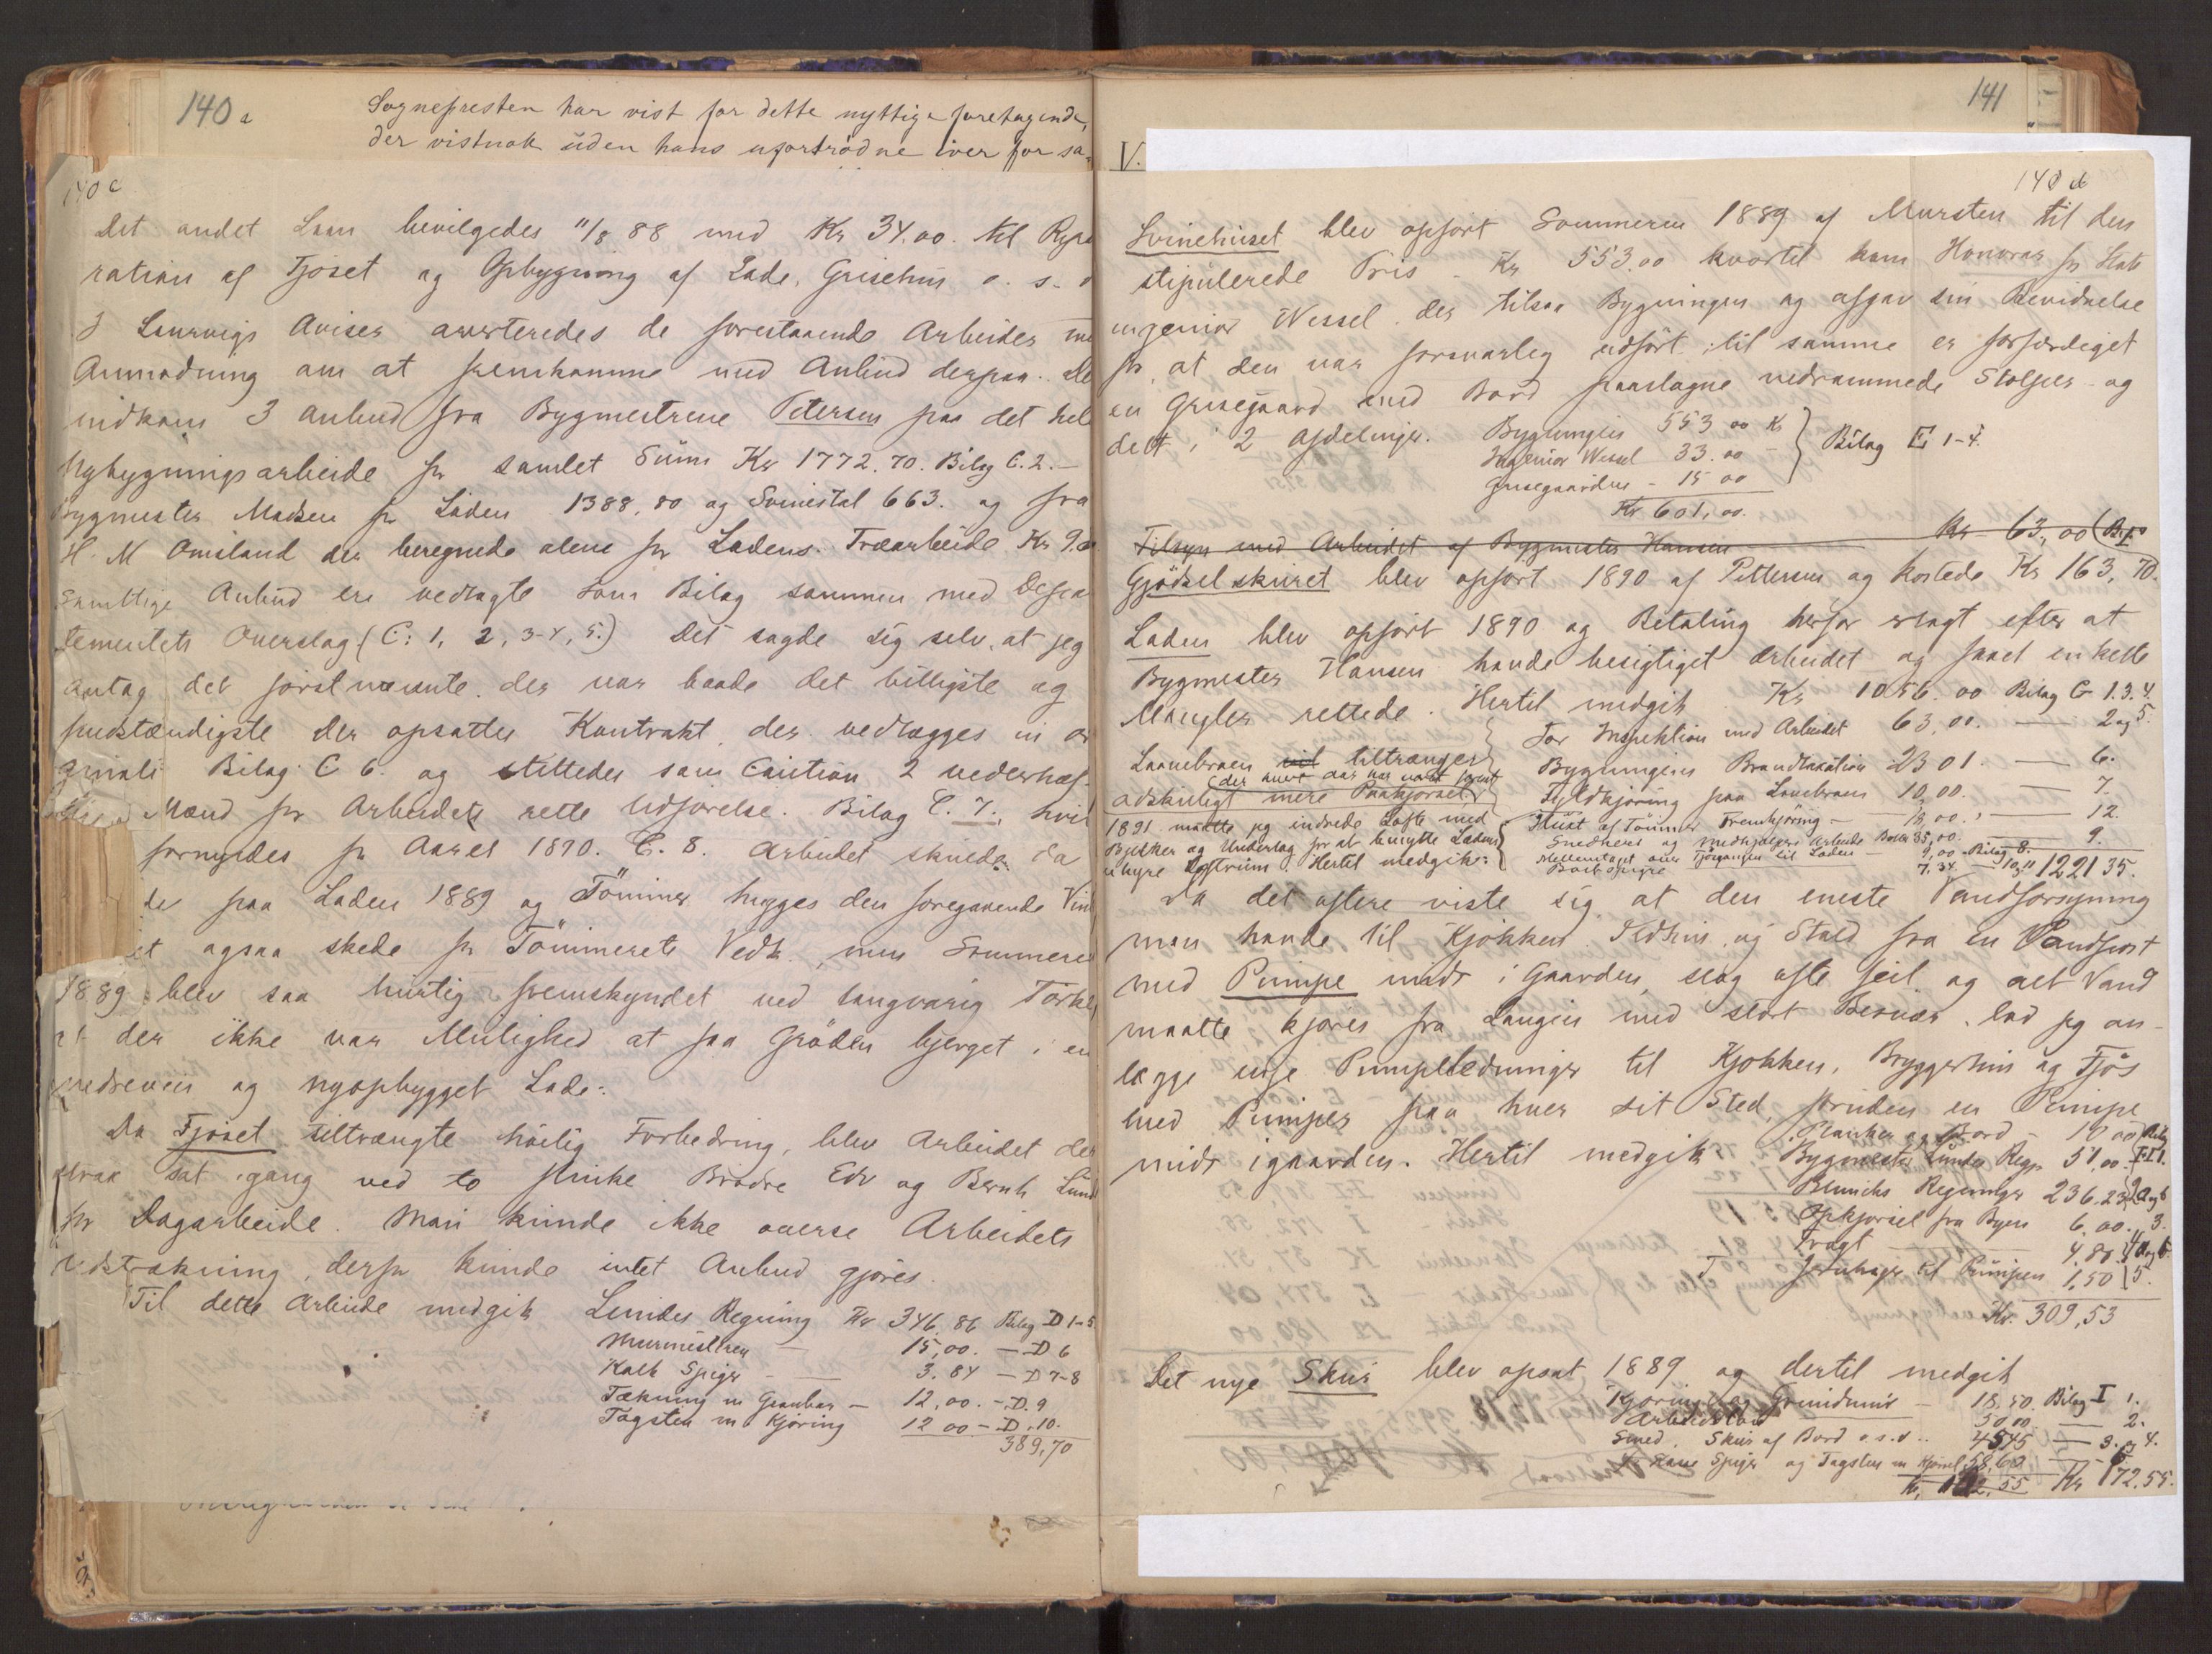 140a
Sognepresten har vist for dette nyttige foretagende,
der vistnok uden hans ufortrødne iver for sa-
140c
Det andet Laan bevilgedes 11/8 88 med Kr 34.00. til Repa
ration af Fjøset og Opbygning af Lade, Grisehus o. s. v
I Laurvigs Aviser averteredes de forestaaende Arbeider me
Anmodning om at fremkomme med Anbud derpaa. De
indkom 3 Anbud fra Bygmestrene Petersen paa det hele
Nybygningsarbeide for samlet Sum Kr 1772.70. Bilag C.2.-
Bygmester Madsen for Laden 1388,80 og Svinestal 663. og fra
H. M Omsland der beregnede alene for Ladens Træarbeide Kr
Samtlige Anbud ere vedlagte som Bilag sammen med Depar
tementets Overslag (C: 1, 2, 3-4, 5.) Det sagde sig selv, at jeg
antog det førstnævnte, der var baade det billigste og
fuldstændigste der opsattes Kontrakt, der vedlægges in or
ginali Bilag C 6. og stilledes som Caution 2 vederhæf-
Mænd for Arbeidets rette Udførelse. Bilag C. 7., hvil
fornyedes for Aaret 1890. C. 8. Arbeidet skulde da
de paa Laden 1889 og Tømmer hugges den foregaaende Vin
et ogsaa skede for Tømmerets Vedk., men Sommeren
1889 blev saa hurtig fremskyndet ved langvarig Tørke,
at der ikke var Mulighed at faa Grøden bjerget i en
nedreven og nyopbygget Lade.
Da Fjøset tiltrængte høilig Forbedring, blev Arbeidet der
strax sat igang ved to flinke Brødre Edv og Bernh Lund
for Dagarbeide. Man kunde ikke overse Arbeidets
Udstrækning, derfor kunde intet Anbud gjøres.
Til dette Arbeide medgik Lundes Regning Kr 346.86 Bilag D 1-5
Murmesteren - 15,00. - D 6
Kalk Spiger - 3.84 - D 7-8
Tækning m Granbar - 12,00. - D. 9
Tagsten m Kjøring 12 00 - D. 10.
389,70
141
V.
140 b
Svinehuset blev opført Sommeren 1889 af Mursten til den
stipulerede Pris - Kr 553.00 hvortil kom Honorar for Stats
ingeniør Wessel der tilsaa Bygningen og afgav sin Bevidnelse
for, at den var forsvarlig udført, til samme er forfærdiget
en Grisegaard med Bord paaslagne nedrammede Stolper og
delt i 2 Afdelinger. Bygningen 553 00 Kr
Ingeniør Wessel 33.00 -
Grisegaarden - 15 00
Bilag E 1-4.
Kr 601,00.
Tilsyn med Arbeidet af Bygmester Hansen Kr 63,00
Gjødselskuret blev opført 1890 af Pettersen og kostede Kr 163,70.
Laden blev opført 1890 og Betaling herfor erlagt efter at
Bygmester Hansen havde besigtiget Arbeidet og faaet enkelte
Mangler rettede. Hertil medgik Kr 1056.00 Bilag G 1.3.4.
For Inspektion med Arbeidet 63,00. — 2 og 5.
Laavebroen tiltrænger
adskilligt mere Paakjørsel
Bygningens Brandtaxation 23 01. — 6.
Fyldkjøring paa Lavebroen 10,00. — 7.
1891 maatte jeg indrede Lofte med
Bjelker og Underlag for at benytte Ladens
uhyre Loftrum. Hertil medgik:
Hugst af Tømmer Fremkjøring - 18,00. — 12.
Snedkers og Medhjælpers Arbeide 35,00. — 9.
9,00 - Bilag 8.
7,34 — 10,11 1221 35.
Da det oftere viste sig at den eneste Vandforsyning
man havde til Kjøkken, Ildhus og Stald fra en Vandpost
med Pumpe midt i Gaarden, slog ofte feil og alt Vand
maatte kjøres fra Laugen med stort Besvær, lod jeg an-
lægge nye Pumpeledninger til Kjøkken, Bryggerhus og Fjøs
med Pumper paa hver sit Sted, foruden en Pumpe
midt i gaarden. Hertil medgik Planker og Bord - 10 00
Bygmester Lundes Regn 51,00.
Regninger 236.23
Opkjørsel fra Byen 6,00. 3.
Fragt 4.80.
Jernhager til Pumpen 1,50 5.
Kr. 309,53
Det nye Skur blev opsat 1889 og dertil medgik
Kjøring og Grundmur - 18,50. Bilag I 1.
Arbeidsløn 50,00 — 2.
Smed. Skur af Bord o.s.v.. 45,45 — 3. og 4.
Spiger og Tagsten m Kjørsel 58,60 — 5
Kr 172,55.